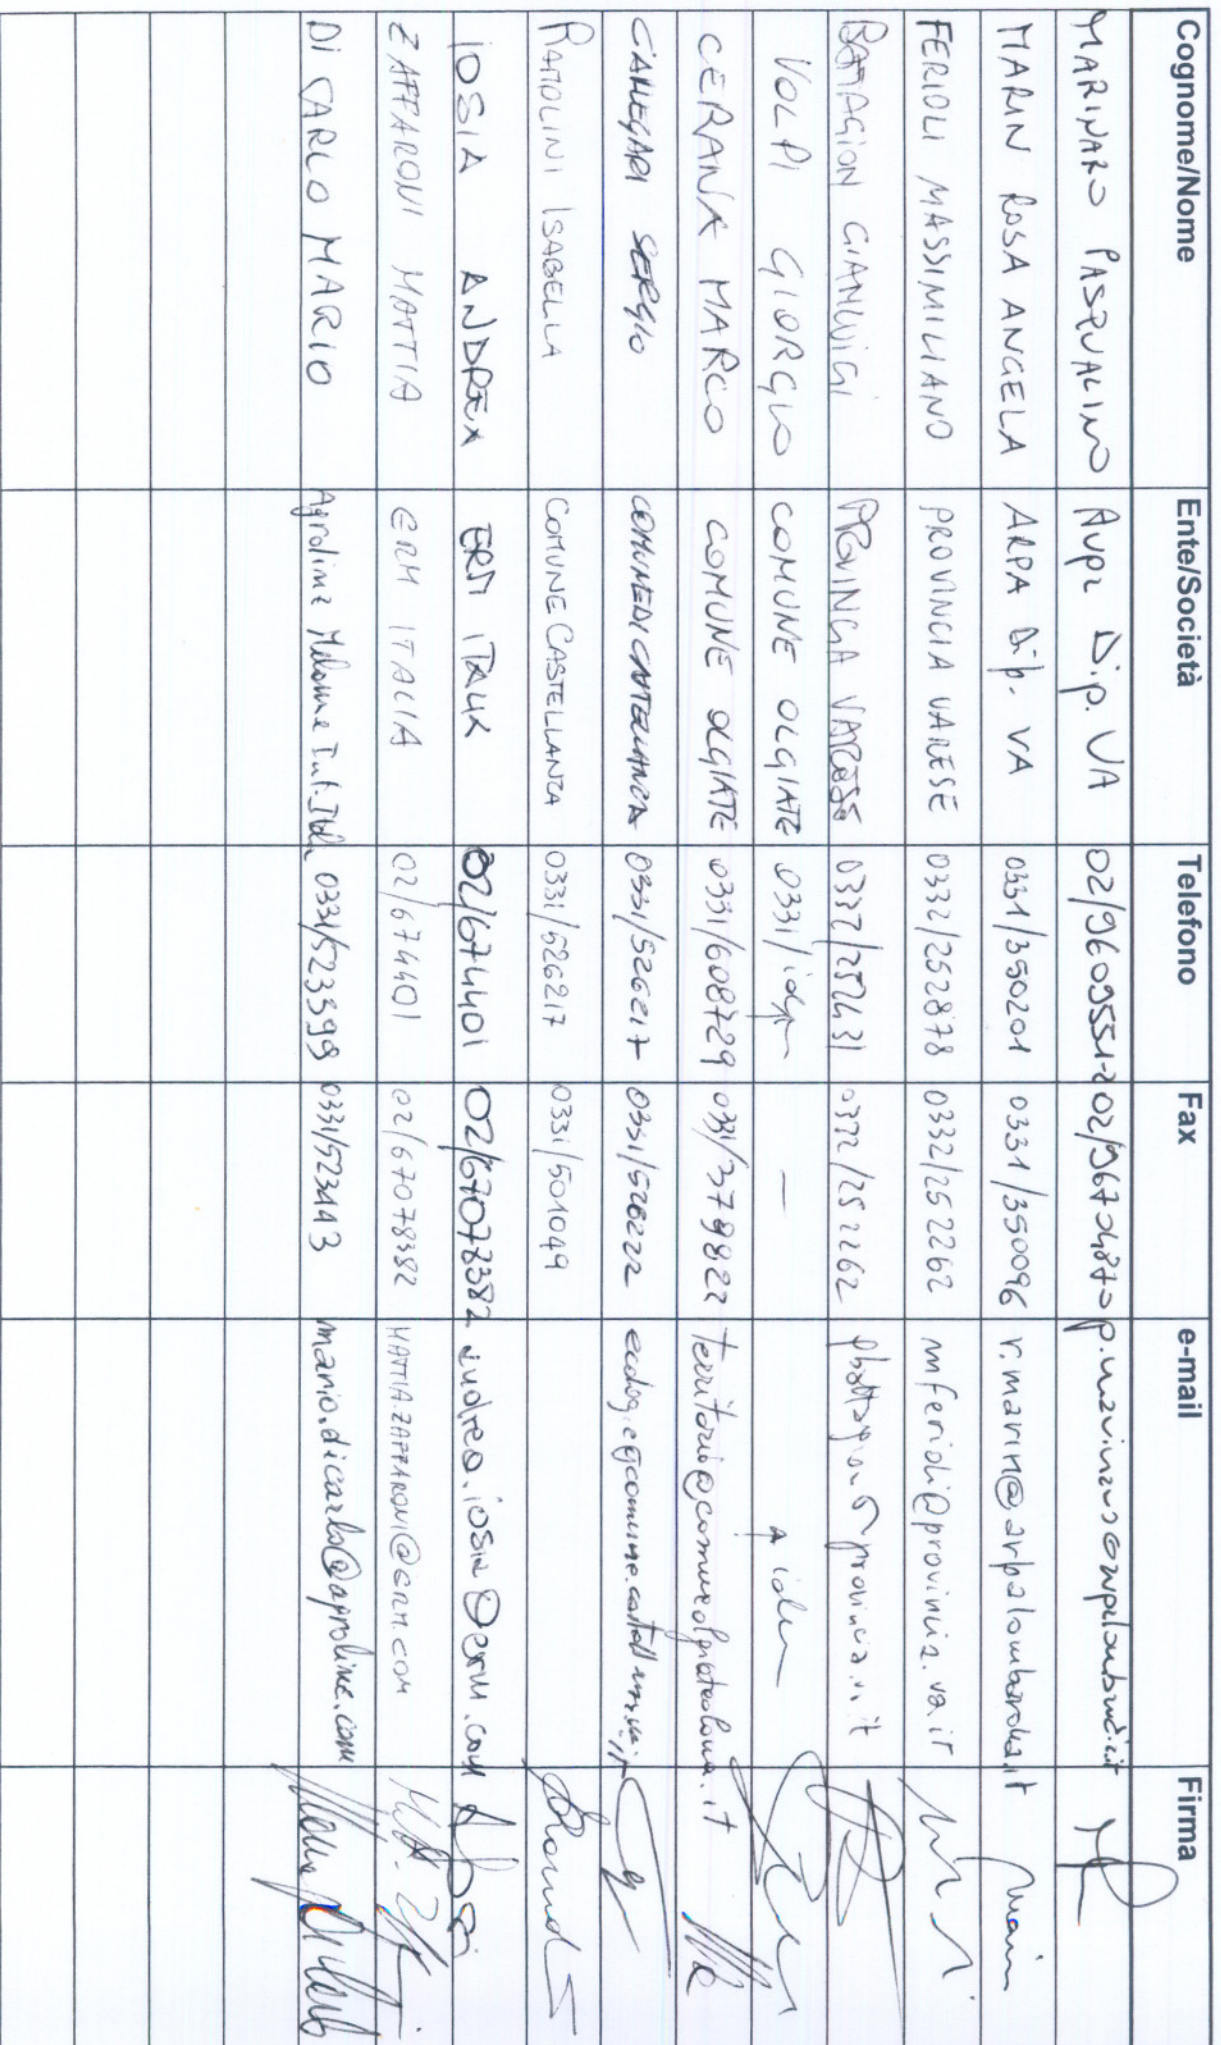 Cognome/Nome Ente/Società Telefono Fax e-mail Firma
MARINARO PASQUALINO Dip. VA
MARIN ROSA ANGELA ARPA Dip. VA 0331/350201 0331/350096 r.marin@arpalombardia.it
FERIOLI MASSIMILIANO PROVINCIA VARESE 0332/252878 0332/252262 mferioli@provincia.va.it
BATTAGION GIANLUIGI PROVINCIA VARESE 0332/252431 0332/252262
VOLPI GIORGIO COMUNE OLGIATE 0331/idem — idem
CERANA MARCO COMUNE OLGIATE 0331/608729 0331/379822 territorio@comuneolgiateolona.it
CANEGARI SERGIO COMUNE DI CASTELLANZA 0331/526217 0331/526222
RAMOLINI ISABELLA COMUNE CASTELLANZA 0331/526217 0331/501049
IOSIA ANDREA ERM ITALIA 02/674401 02/67078382 andrea.iosia@erm.com
ZAFFARONI MATTIA ERM ITALIA 02/674401 02/67078382 MATTIA.ZAFFARONI@ERM.COM
DI CARLO MARIO Agrolinz Melamine Int. Italia 0331/523399 0331/523443 mario.dicarlo@agroline.com